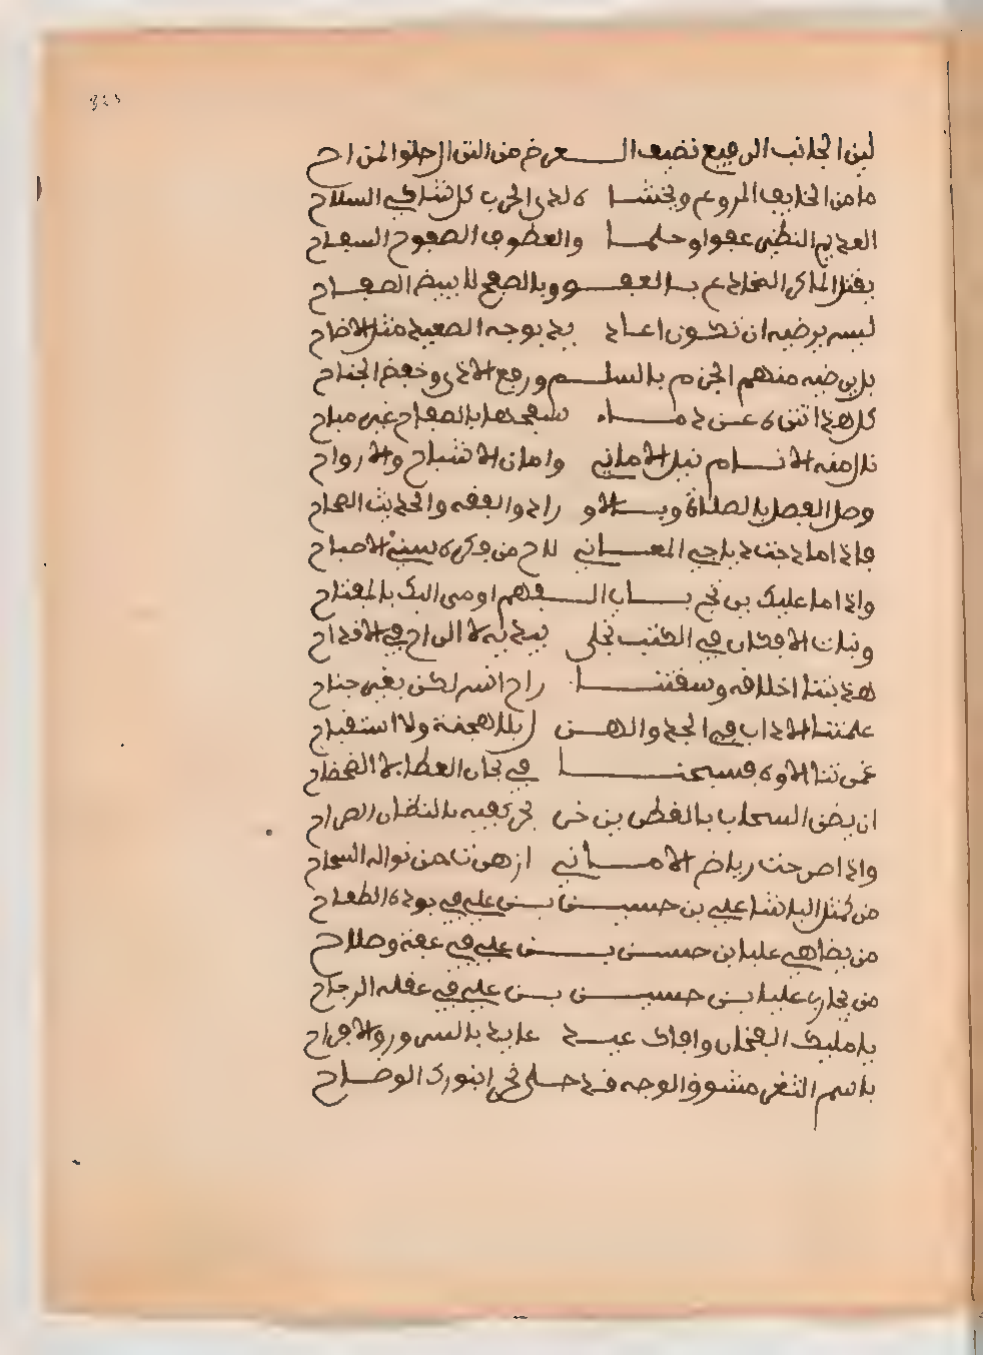 لين الجانب الرفيع نضيف العرض من النزال حلو المزاح
مامن الخايف المروع ويخشا ه لدى الحرب كل شاكي السلاح
العديم النظير عفوا وحلما والعطوف الصفوح السفاح
يقتل الماكر المخادع بالعفو وبالصفح لا ببيض الصفاح
ليس يرضيه ان تكون اعاد يه بوجه الصعيد مثل الاضاح
بل يرضيه منهم الجزم بالسلم ورفع الاذى وخفض الجناح
كل هذا اتقاه عن دماء سفحها بالصفاح غير مباح
نال منه الانام نيل الاماني وامان الاشباح والارواح
وصل الفصل بالصلاة وبالاو راد والفقه والحديث الصحاح
فاذا ما دجت دياجي المعاني لاح من فكره سني الاصباح
واذا ما عليك يرتج باب الفهم اومى اليك بالمفتاح
وبنات الافكار في الكتب تجلى بيديه لا الراح في الاقداح
هذبتنا اخلاقه وسقتنا راح انس لكن بغير جناح
علمتنا الاداب في الجد والهز ل بلا هجنة ولا استقباح
غمرتنا الاوه فسبحنا في بحار العطا لا الضحضاح
ان يضن السحاب بالقطر يزخر بحر كفيه بالنضار الصراح
واذا صوحت رياض الاماني ازهرت من نواله السحاح
من كمثل الباشا علي بن حسين بن علي في جوده الطفاح
من يضاهي عليا بن حسين بن علي في عفة وصلاح
من يجاري عليا بن حسين بن علي في عقله الرجاح
يا مليك الفخار وافاك عيد عايد بالسرور والافراح
باسم الثغر مشرق الوجه قد حلى فجرا بنورك الوضاح